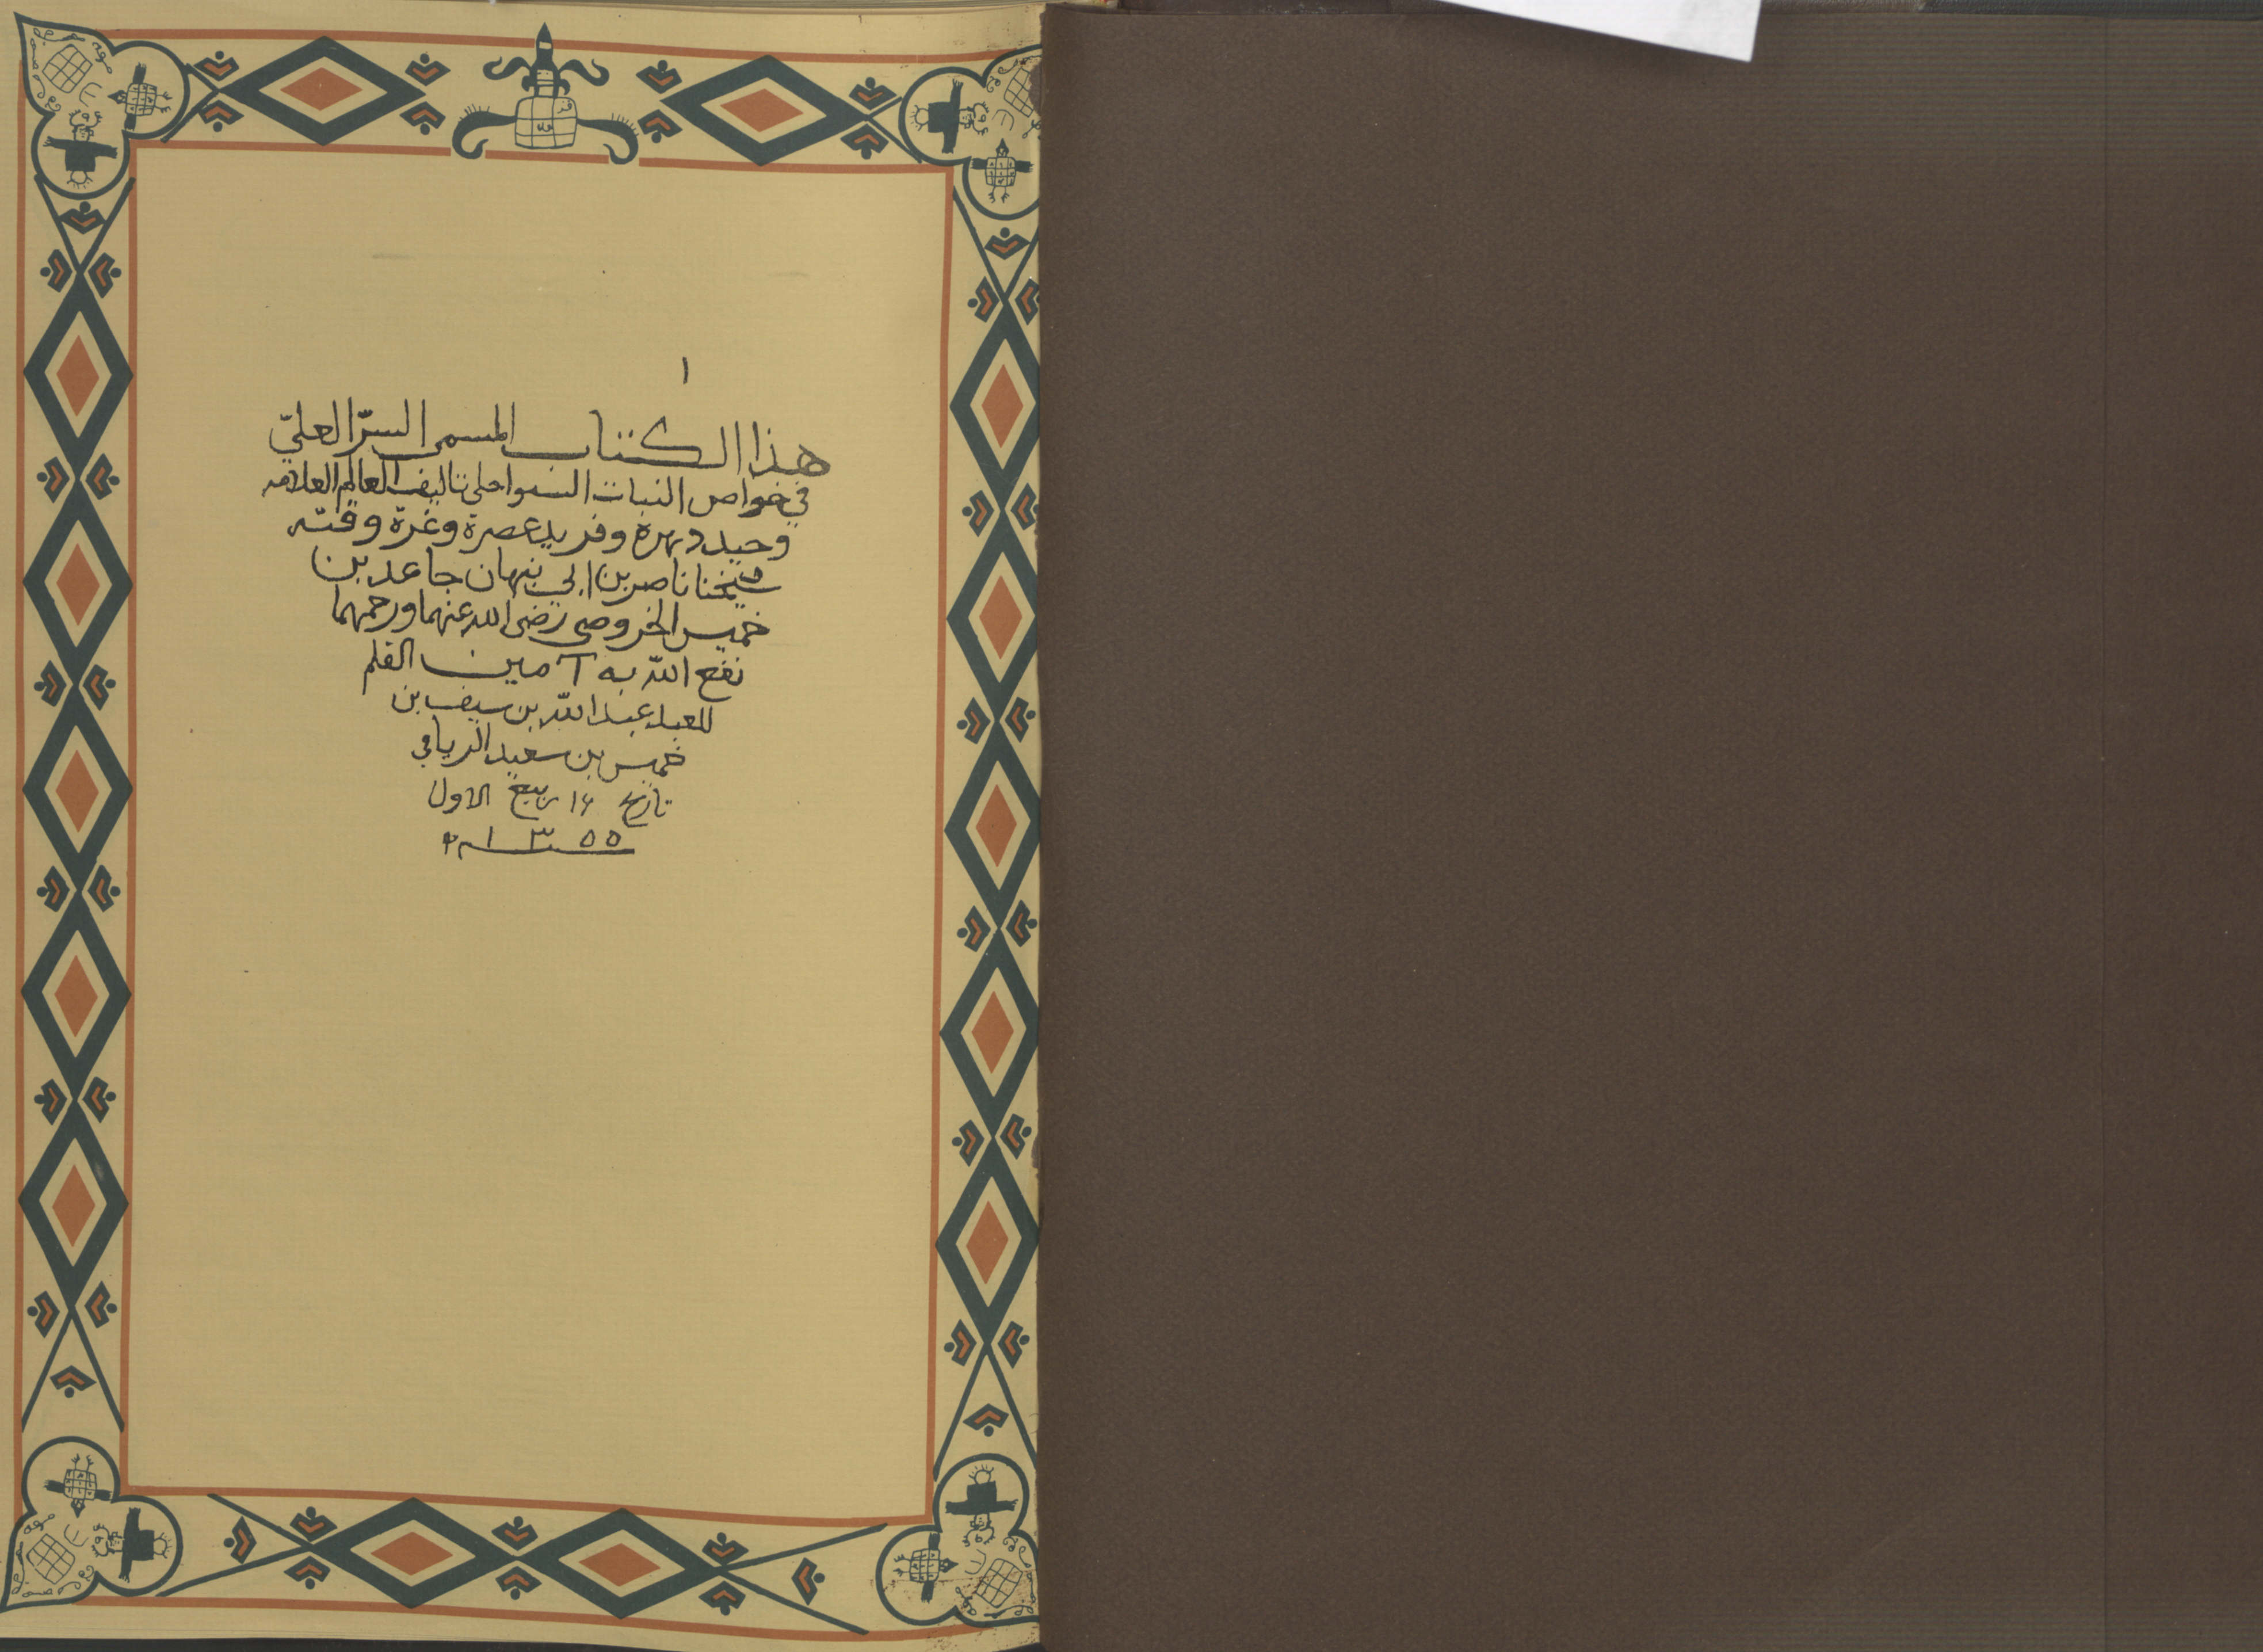 ١
هذا الكتاب المسمى السرّ العليّ
في خواص النبات السواحلي تاليف العالم العلامه
وحيد دهره وفريد عصرة وغرة وقته
شيخنا ناصر بن ابي نبهان جاعد بن
خميس الخروصي رضي الله عنهما ورحمهما
نفع الله به آمين القلم
للعبد عبد الله بن سيف بن
خميس بن سعيد الريامي
تاريخ ١٤ ربيع الاول
١٣٥٥